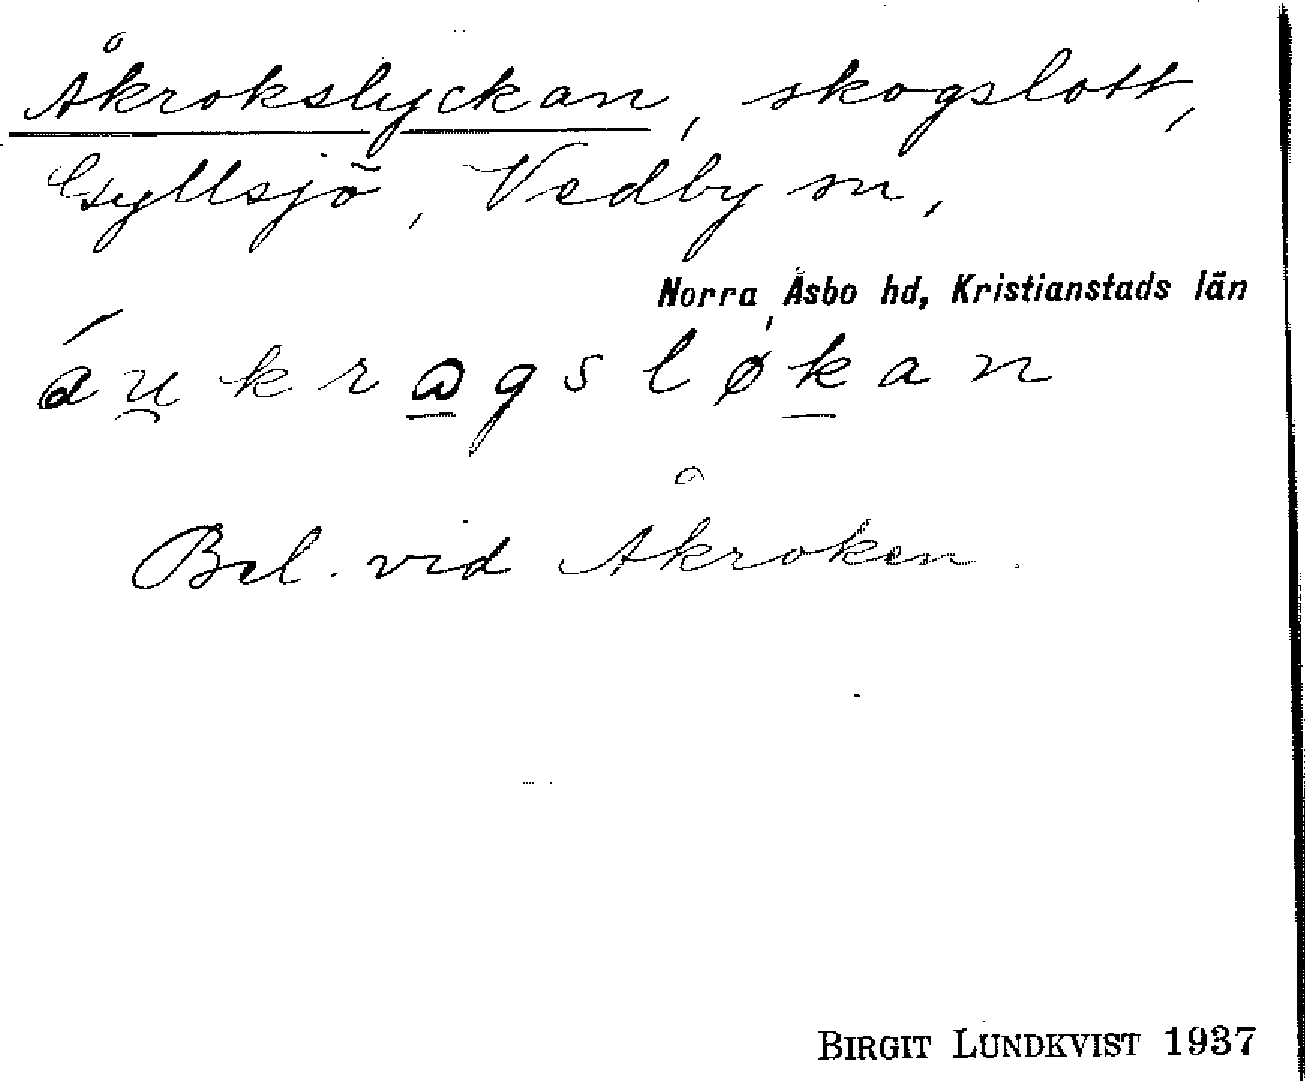 Åkrokslyckan, skogslott,
Gyllsjö, Vedby sn,
Norra Åsbo hd, Kristianstads län
áu̯krɷgsløkan
Bel. vid Åkroken.
BIRGIT LUNDKVIST 1937